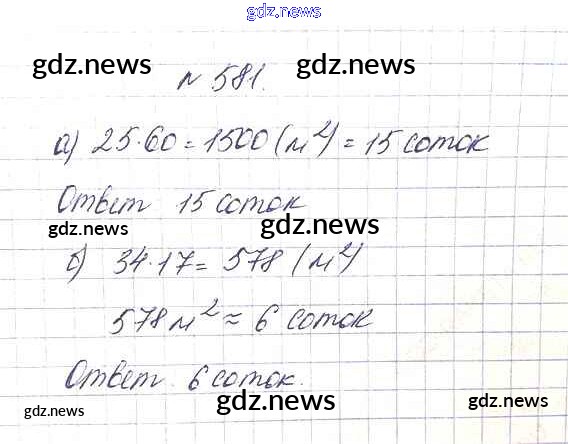 gdz.news
gdz.news gdz.news
№ 581.
а) 25·60 = 1500 (м²) = 15 соток
Ответ 15 соток
gdz.news gdz.news
б) 34·17 = 578 (м²)
578 м² ≈ 6 соток
Ответ 6 соток.
gdz.news gdz.news gdz.news